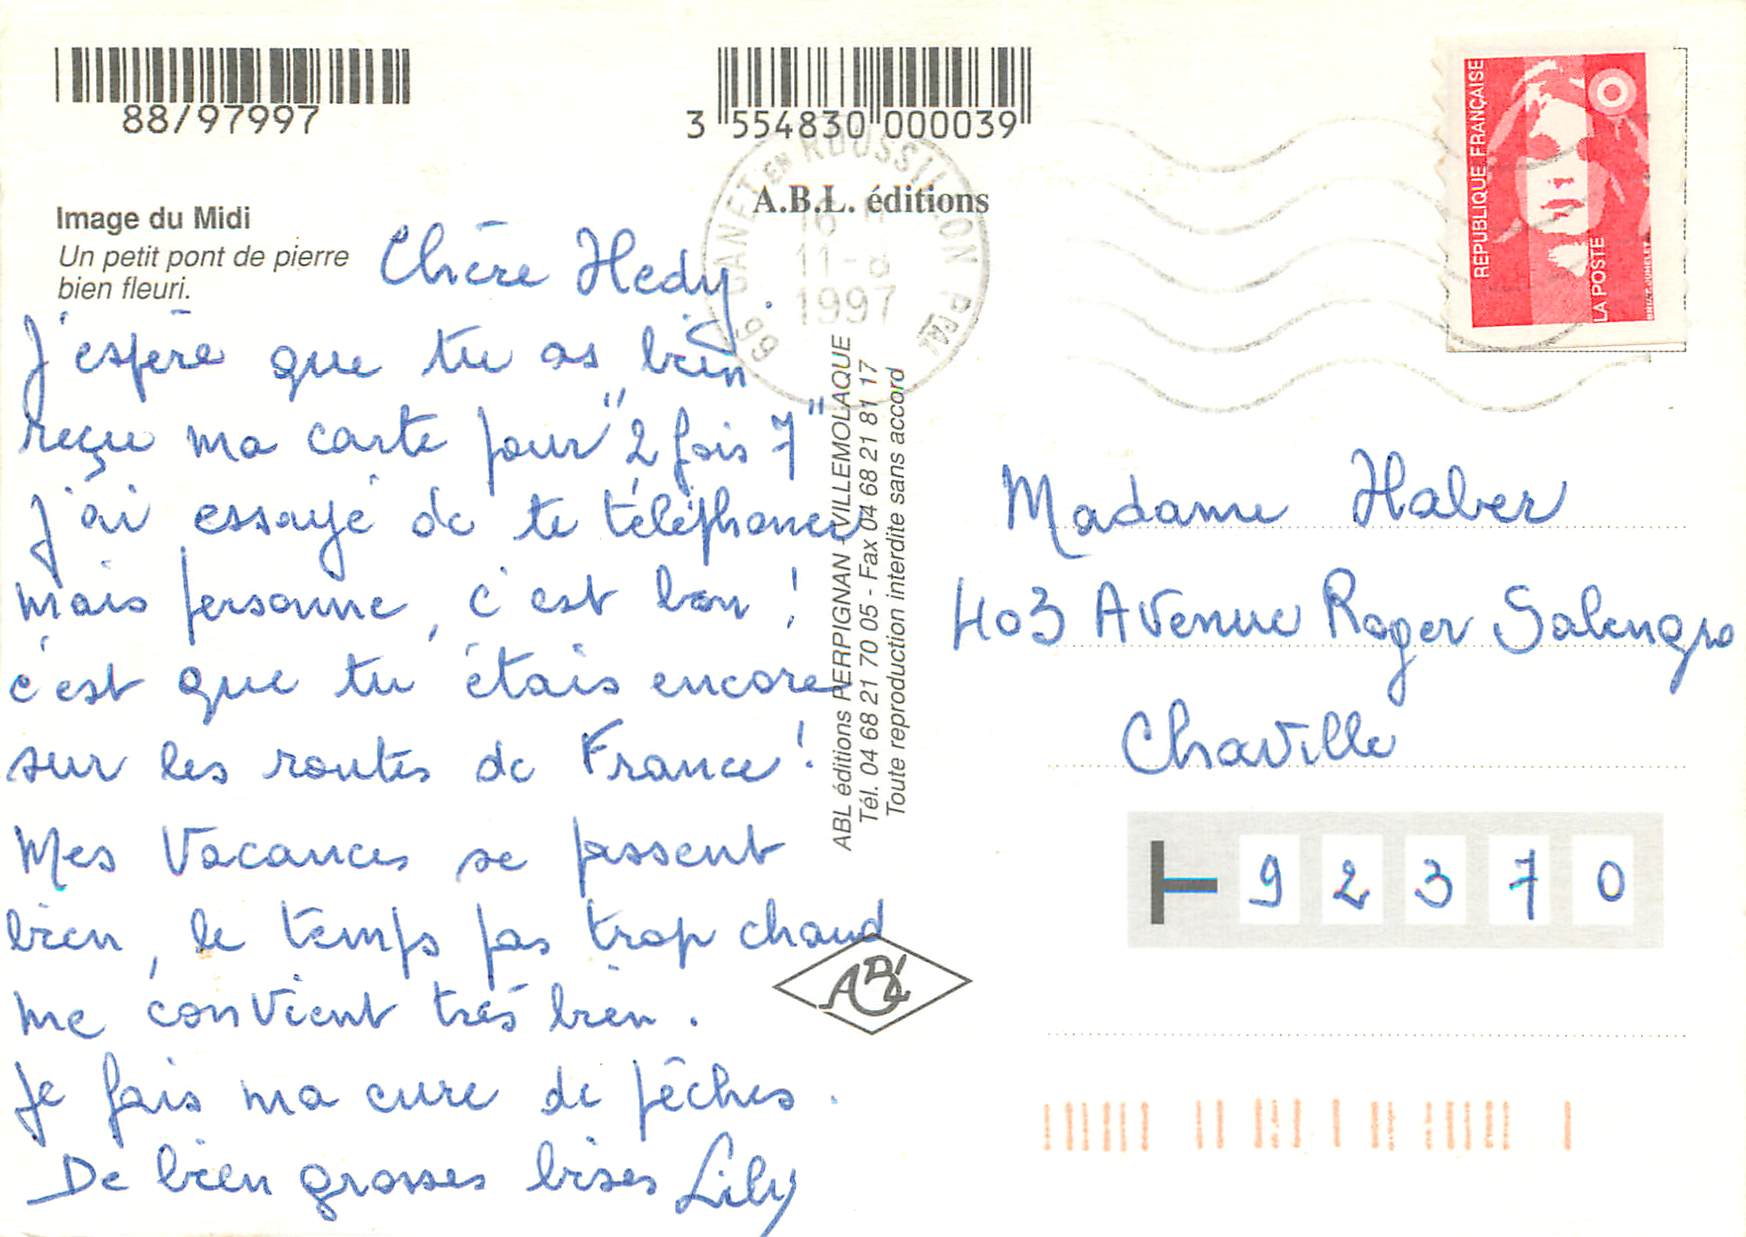 88/97997
3 554830 000039
A.B.L. éditions
Image du Midi
Un petit pont de pierre
bien fleuri.
Chère Hedy.
J'espère que tu as bien
reçu ma carte pour "2 fois 7"
J'ai essayé de te téléphoner
mais personne, c'est bon !
c'est que tu étais encore
sur les routes de France !
Mes Vacances se passent
bien, le temps pas trop chaud
me convient très bien.
Je fais ma cure de pêches.
De bien grosses bises Lily
ABL éditions PERPIGNAN - VILLEMOLAQUE
Tél. 04 68 21 70 05 - Fax 04 68 21 81 17
Toute reproduction interdite sans accord
ABL
66 CANET EN ROUSSILLON PPAL
16 H
11-8
1997
REPUBLIQUE FRANÇAISE
LA POSTE
Madame Haber
403 Avenue Roger Salengro
Chaville
92370